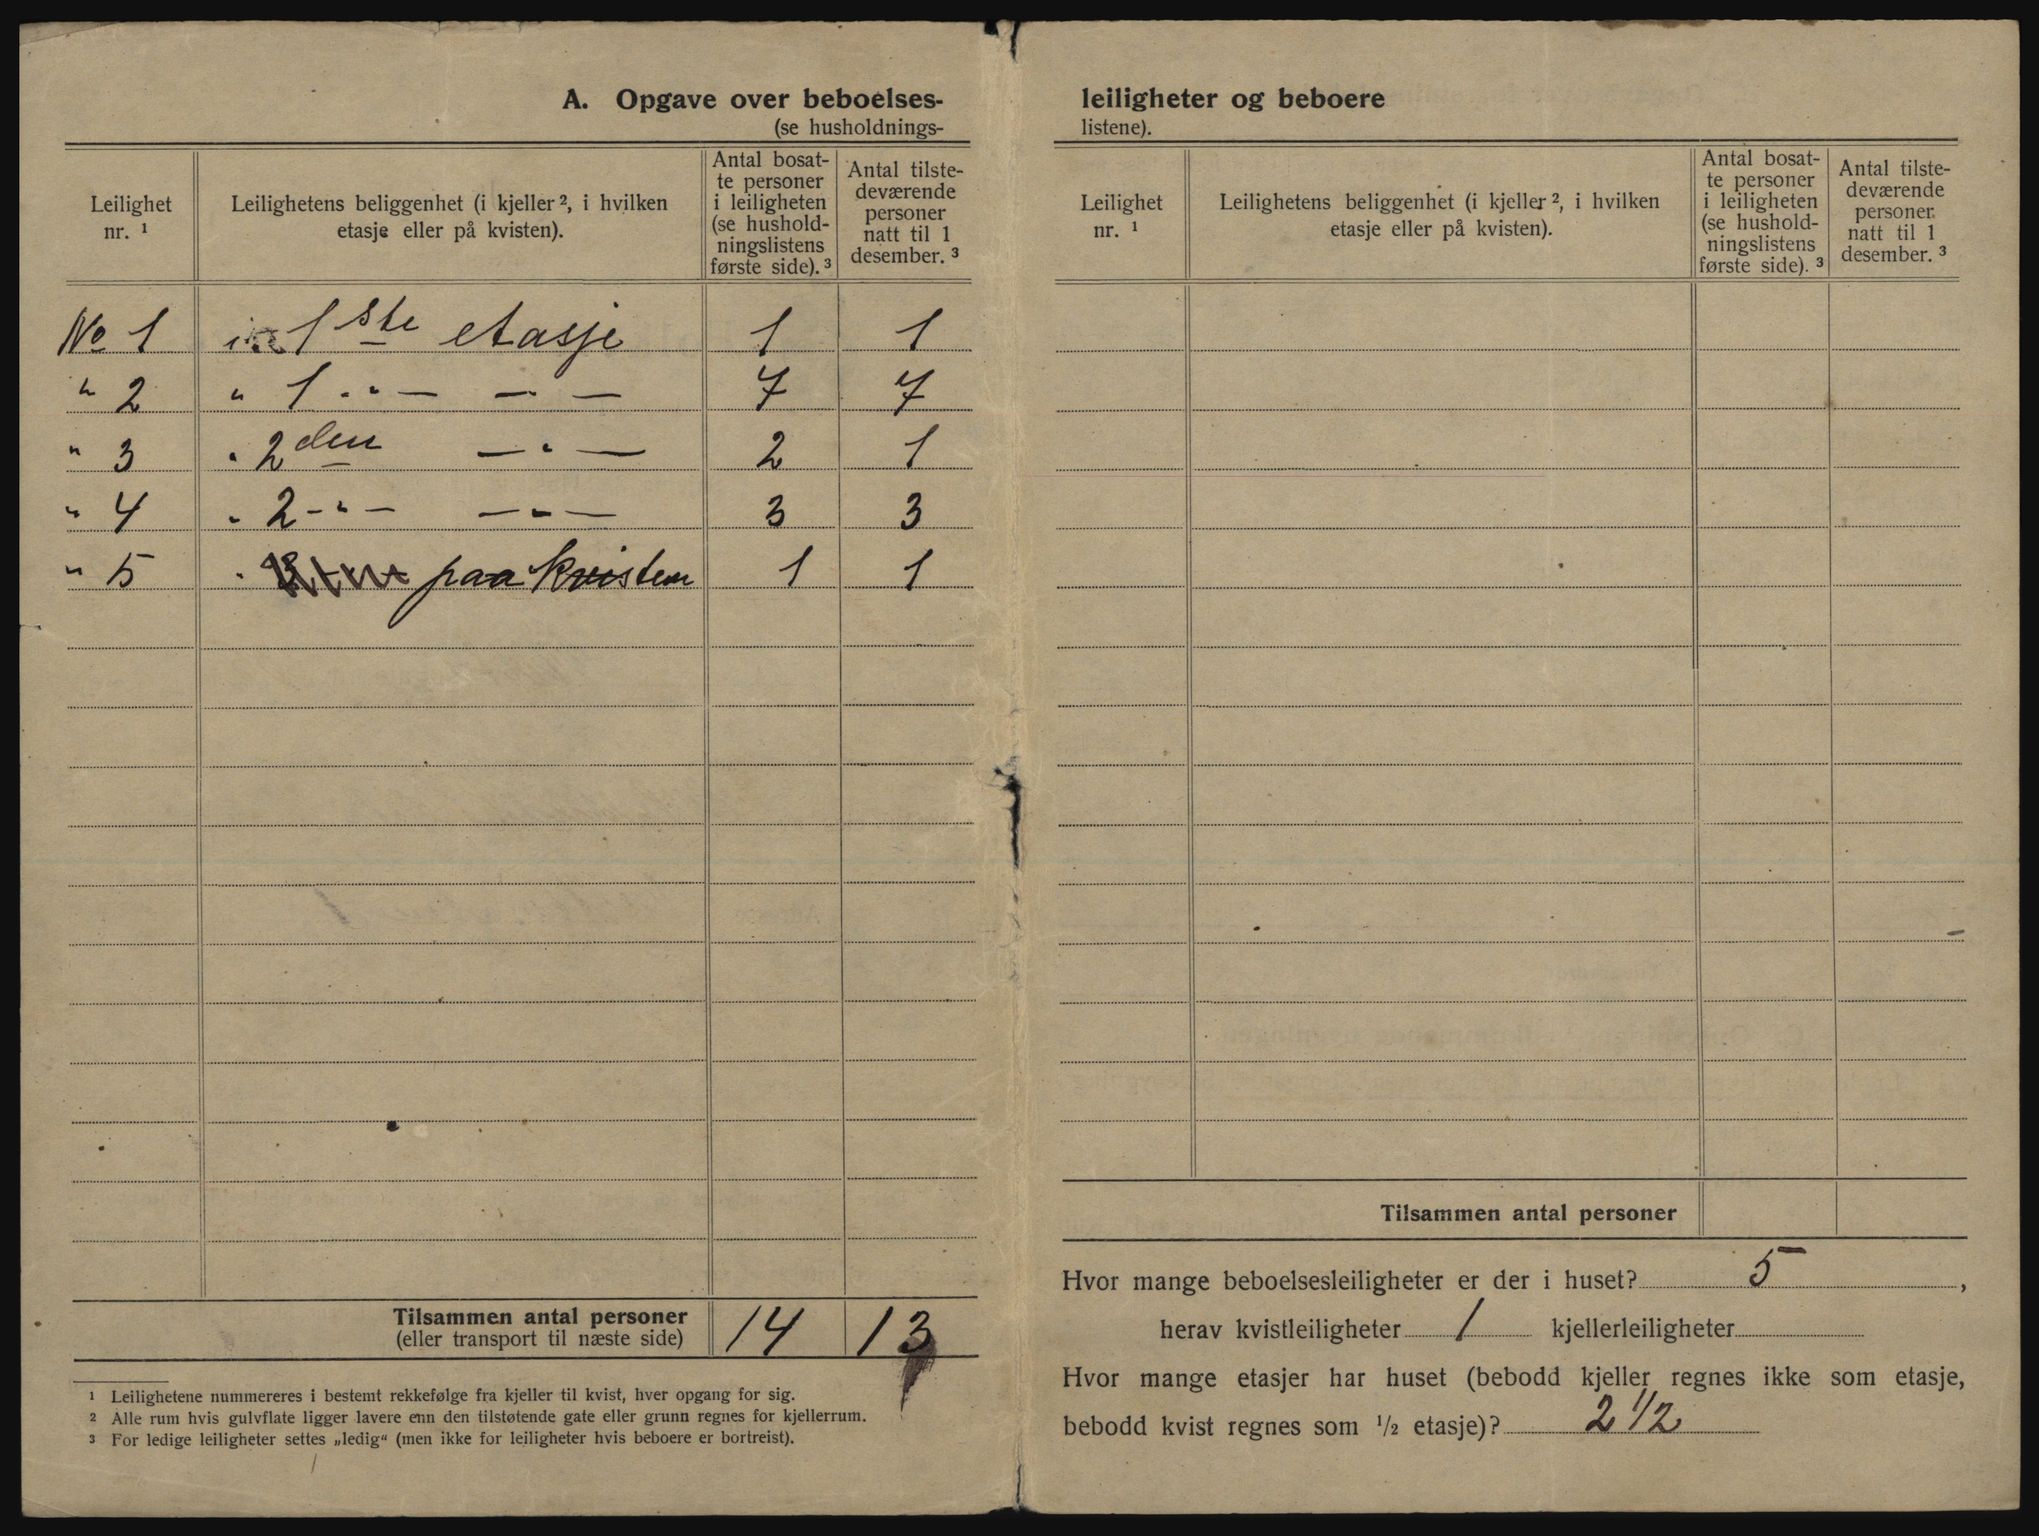 A. Opgave over beboelses-
(se husholdnings-
Leilighet nr. ¹
Leilighetens beliggenhet (i kjeller ², i hvilken etasje eller på kvisten).
Antal bosat-
te personer
i leiligheten
(se hushold-
ningslistens
første side). ³
Antal tilste-
deværende
personer
natt til 1
desember. ³
No 1 i 1ste etasje 1 1
" 2 " 1 -"- -"- 7 7
" 3 " 2den -"- 2 1
" 4 " 2 -"- -"- 3 3
" 5 " paa kvisten 1 1
Tilsammen antal personer 14 13
(eller transport til næste side)
¹ Leilighetene nummereres i bestemt rekkefølge fra kjeller til kvist, hver opgang for sig.
² Alle rum hvis gulvflate ligger lavere enn den tilstøtende gate eller grunn regnes for kjellerrum.
³ For ledige leiligheter settes „ledig“ (men ikke for leiligheter hvis beboere er bortreist).
leiligheter og beboere
listene).
Leilighet nr. ¹
Leilighetens beliggenhet (i kjeller ², i hvilken etasje eller på kvisten).
Antal bosat-
te personer
i leiligheten
(se hushold-
ningslistens
første side). ³
Antal tilste-
deværende
personer
natt til 1
desember. ³
Tilsammen antal personer
Hvor mange beboelsesleiligheter er der i huset? 5,
herav kvistleiligheter 1 kjellerleiligheter
Hvor mange etasjer har huset (bebodd kjeller regnes ikke som etasje,
bebodd kvist regnes som ½ etasje)? 2 1/2